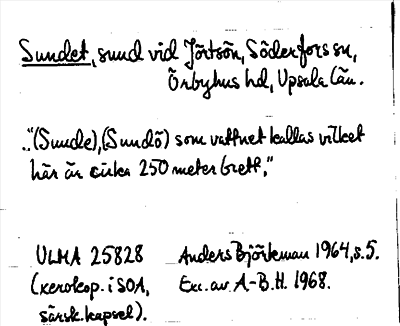 Sundet, sund vid Jörtsön, Söderfors sn,
Örbyhus hd, Upsala län.
..“(Sunde), (Sundö) som vattnet kallas vilket
här är cirka 250 meter brett,”
ULMA 25828 Anders Björkman 1964, s. 5.
(xerokop. i SOA, Exc. av A-B.H. 1968.
särsk. kapsel).